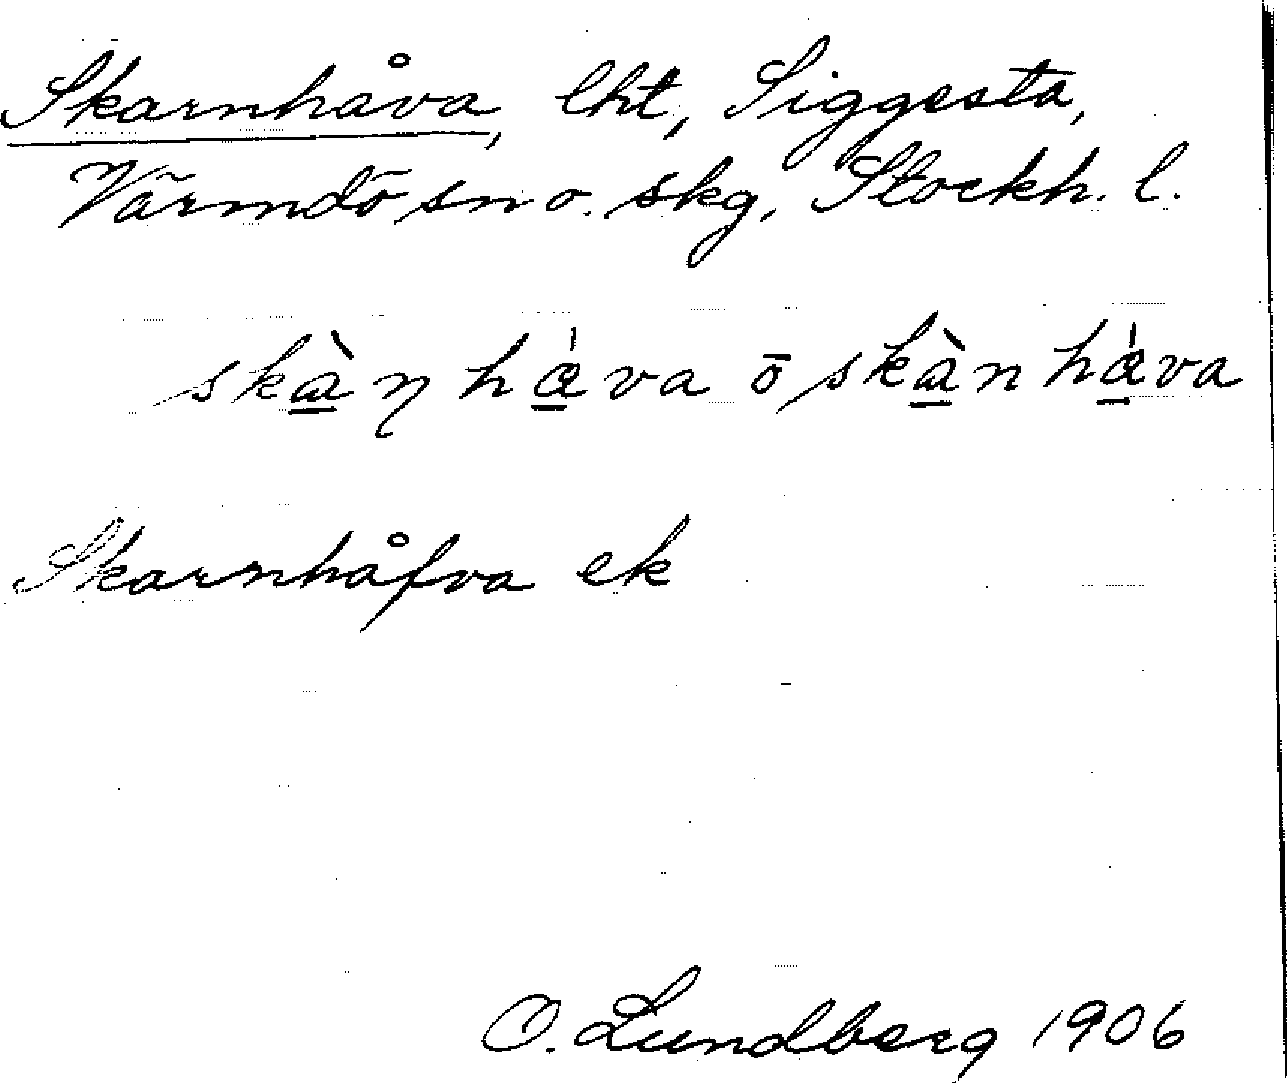 Skarnhåva, lht, Siggesta,
Värmdö sn o. skg, Stockh. l.
skàn̨ hάva ō skàn hάva
Skarnhåfva ek
O. Lundberg 1906